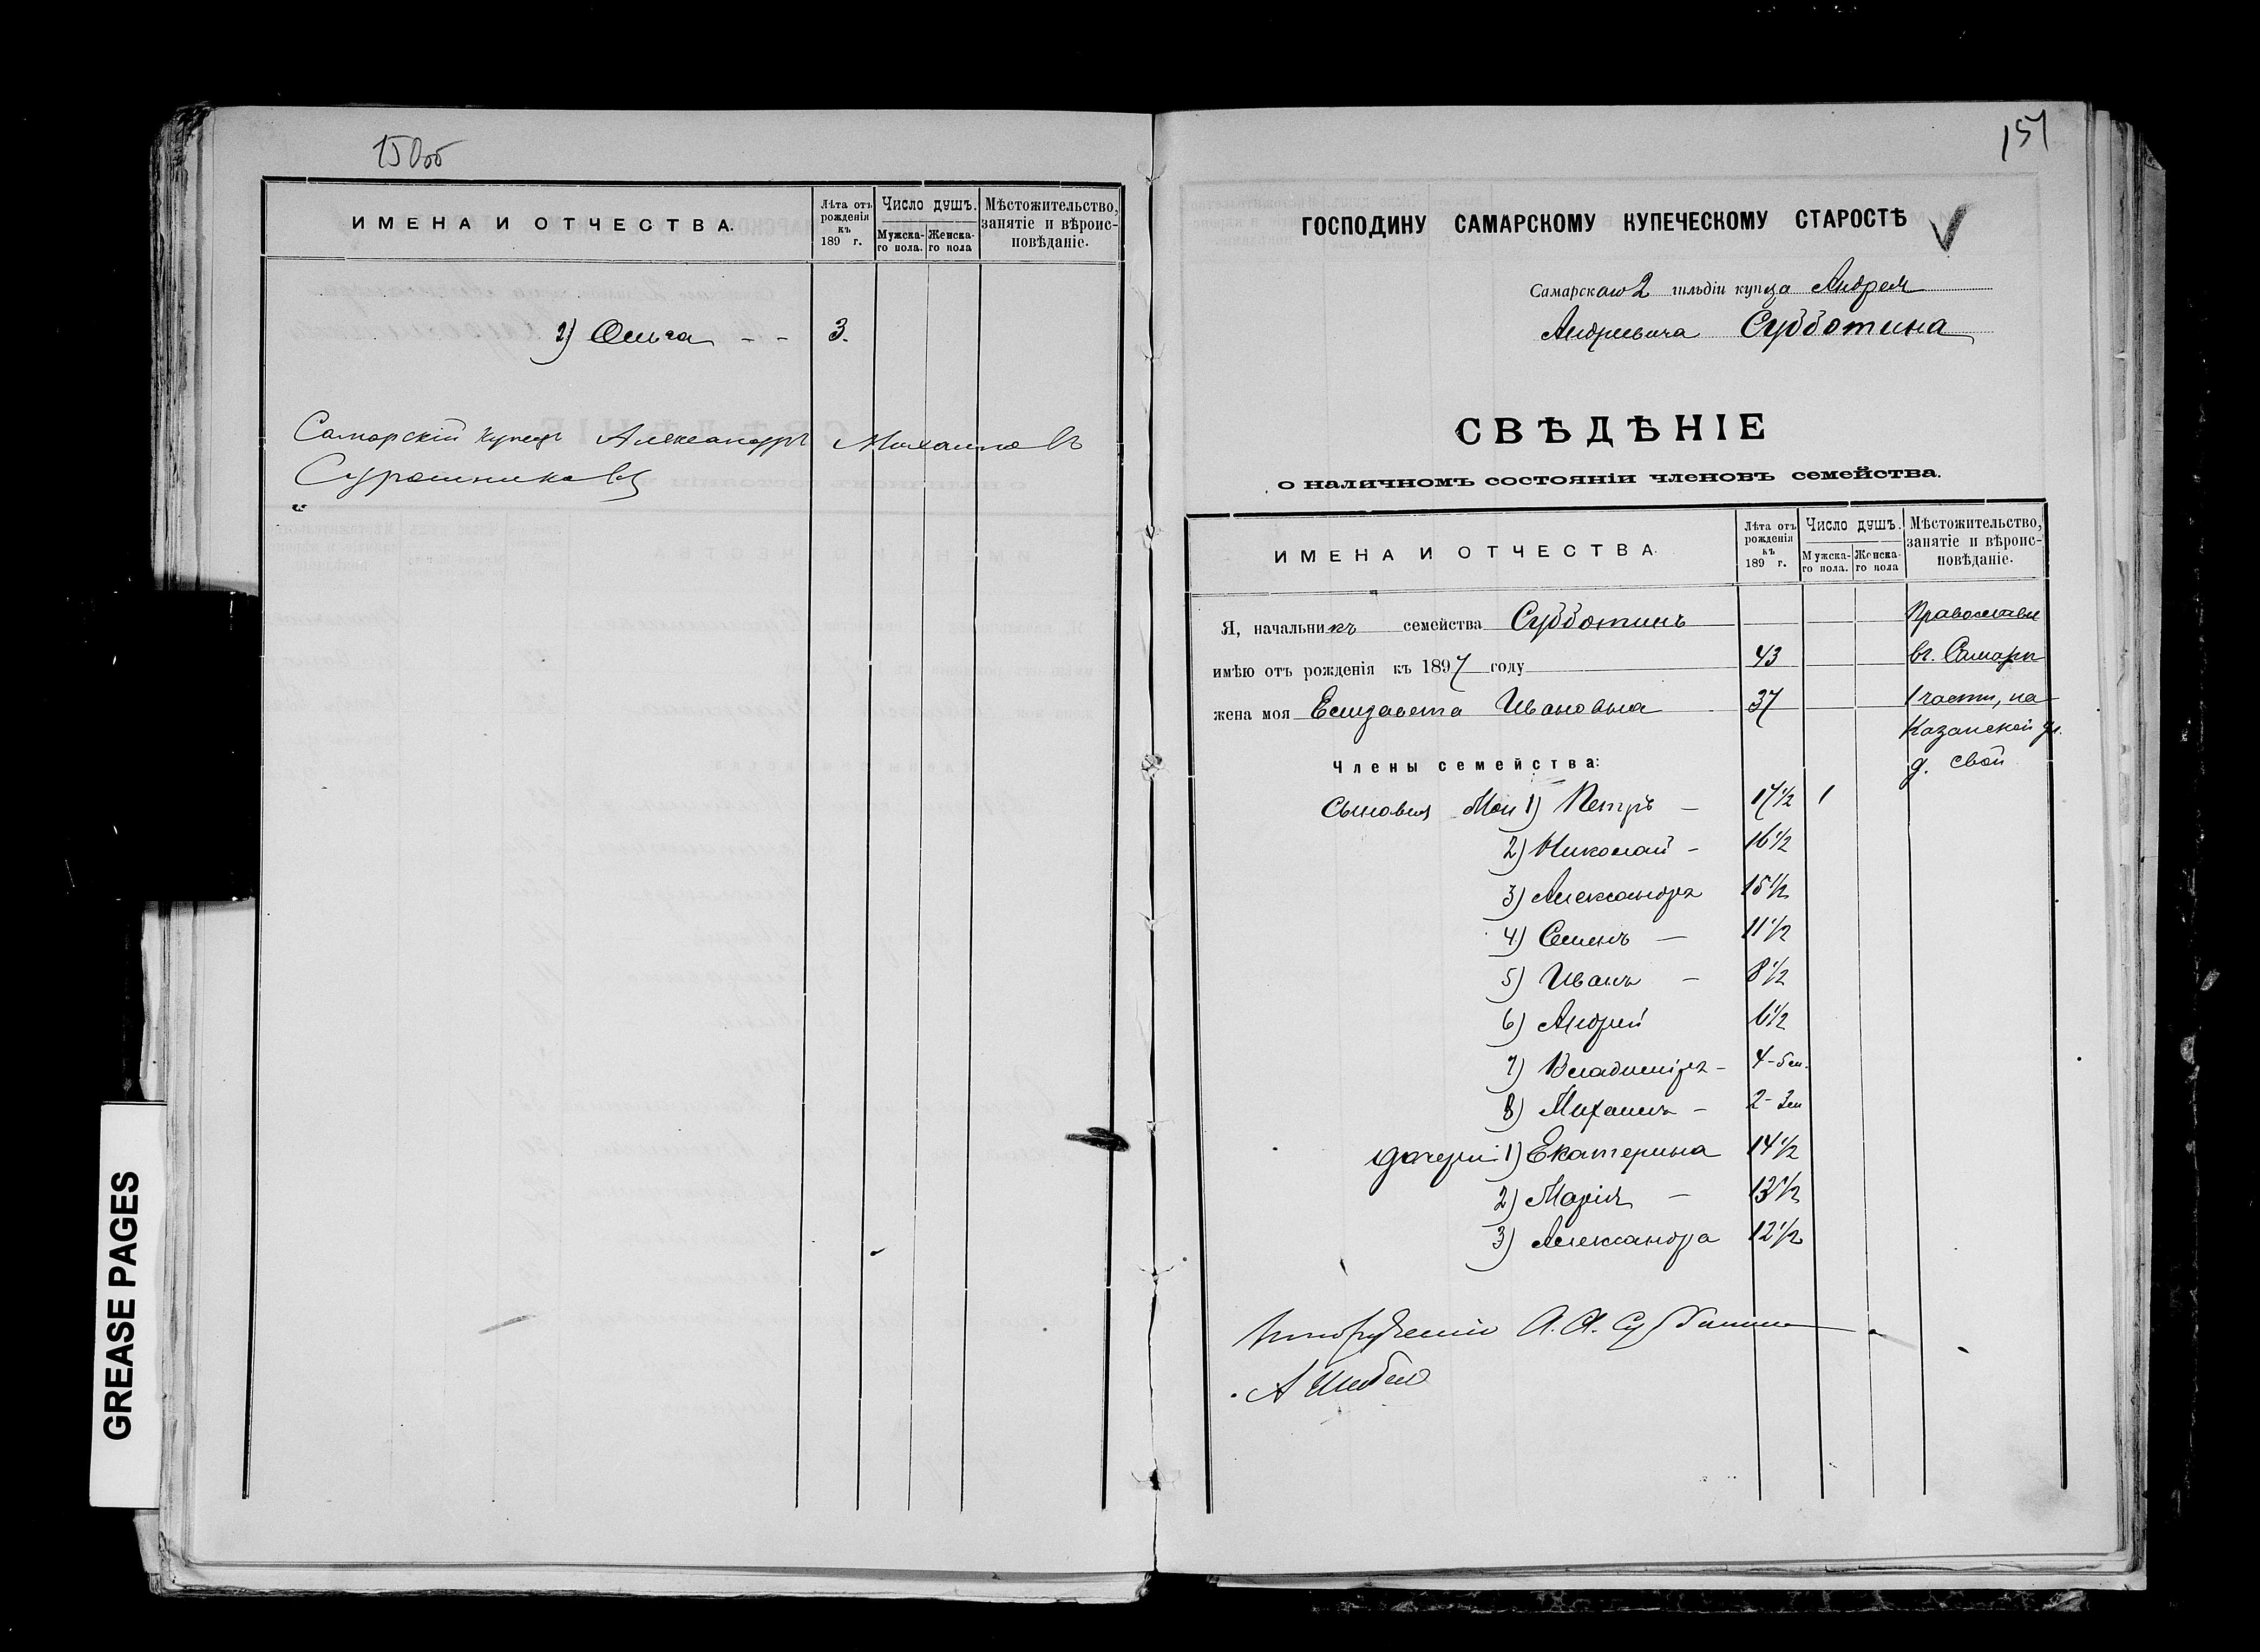 150об
ИМЕНА И ОТЧЕСТВА.
Лѣта отъ рожденія къ 189 г.
Число душъ.
Мужска-го пола.
Женска-го пола
Мѣстожительство, занятіе и вѣроис-повѣданіе.
2) Ольга - - 3.
Самарскій купецъ Александръ Михаиловъ
Сурошниковъ
GREASE PAGES
151
ГОСПОДИНУ САМАРСКОМУ КУПЕЧЕСКОМУ СТАРОСТѢ
Самарскаго 2 гильдіи купца Андрея
Андреевича Субботина
СВѢДѢНІЕ
о наличномъ состояніи членовъ семейства.
ИМЕНА И ОТЧЕСТВА.
Лѣта отъ рожденія къ 189 г.
Число душъ.
Мужска-го пола.
Женска-го пола
Мѣстожительство, занятіе и вѣроис-повѣданіе.
Я, начальникъ семейства Субботинъ Православн
имѣю отъ рожденія къ 1897 году 43 вг. Самарѣ
жена моя Елизавета Ивановна 37 1 части, на
Казанской ул.
Члены семейства: д. свой
Сыновья Мои 1) Петръ - 17 1/2 1
2) Николай - 16 1/2
3) Александръ 15 1/2
4) Семенъ - 11 1/2
5) Иванъ - 8 1/2
6) Андрей 6 1/2
7) Владиміръ - 4-5м.
8) Михаилъ - 2-3м
дочери 1) Екатерина 14 1/2
2) Марія - 13 1/2
3) Александра 12 1/2
А. А. Субботина